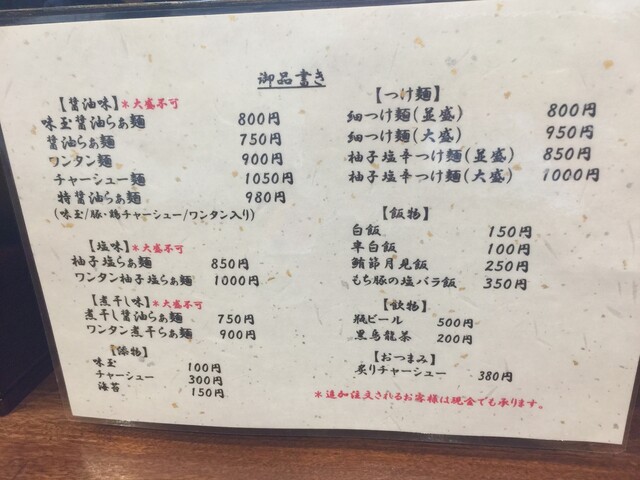 御品書き
【醤油味】＊大盛不可
味玉醤油らぁ麺 800円
醤油らぁ麺 750円
ワンタン麺 900円
チャーシュー麺 1050円
特醤油らぁ麺 980円
(味玉/豚・鶏チャーシュー/ワンタン入り)
【塩味】＊大盛不可
柚子塩らぁ麺 850円
ワンタン柚子塩らぁ麺 1000円
【煮干し味】＊大盛不可
煮干し醤油らぁ麺 750円
ワンタン煮干らぁ麺 900円
【添物】
味玉 100円
チャーシュー 300円
海苔 150円
【つけ麺】
細つけ麺(並盛) 800円
細つけ麺(大盛) 950円
柚子塩辛つけ麺(並盛) 850円
柚子塩辛つけ麺(大盛) 1000円
【飯物】
白飯 150円
半白飯 100円
鯖節月見飯 250円
もち豚の塩バラ飯 350円
【飲物】
瓶ビール 500円
黒烏龍茶 200円
【おつまみ】
炙りチャーシュー 380円
＊追加注文されるお客様は現金でも承ります。